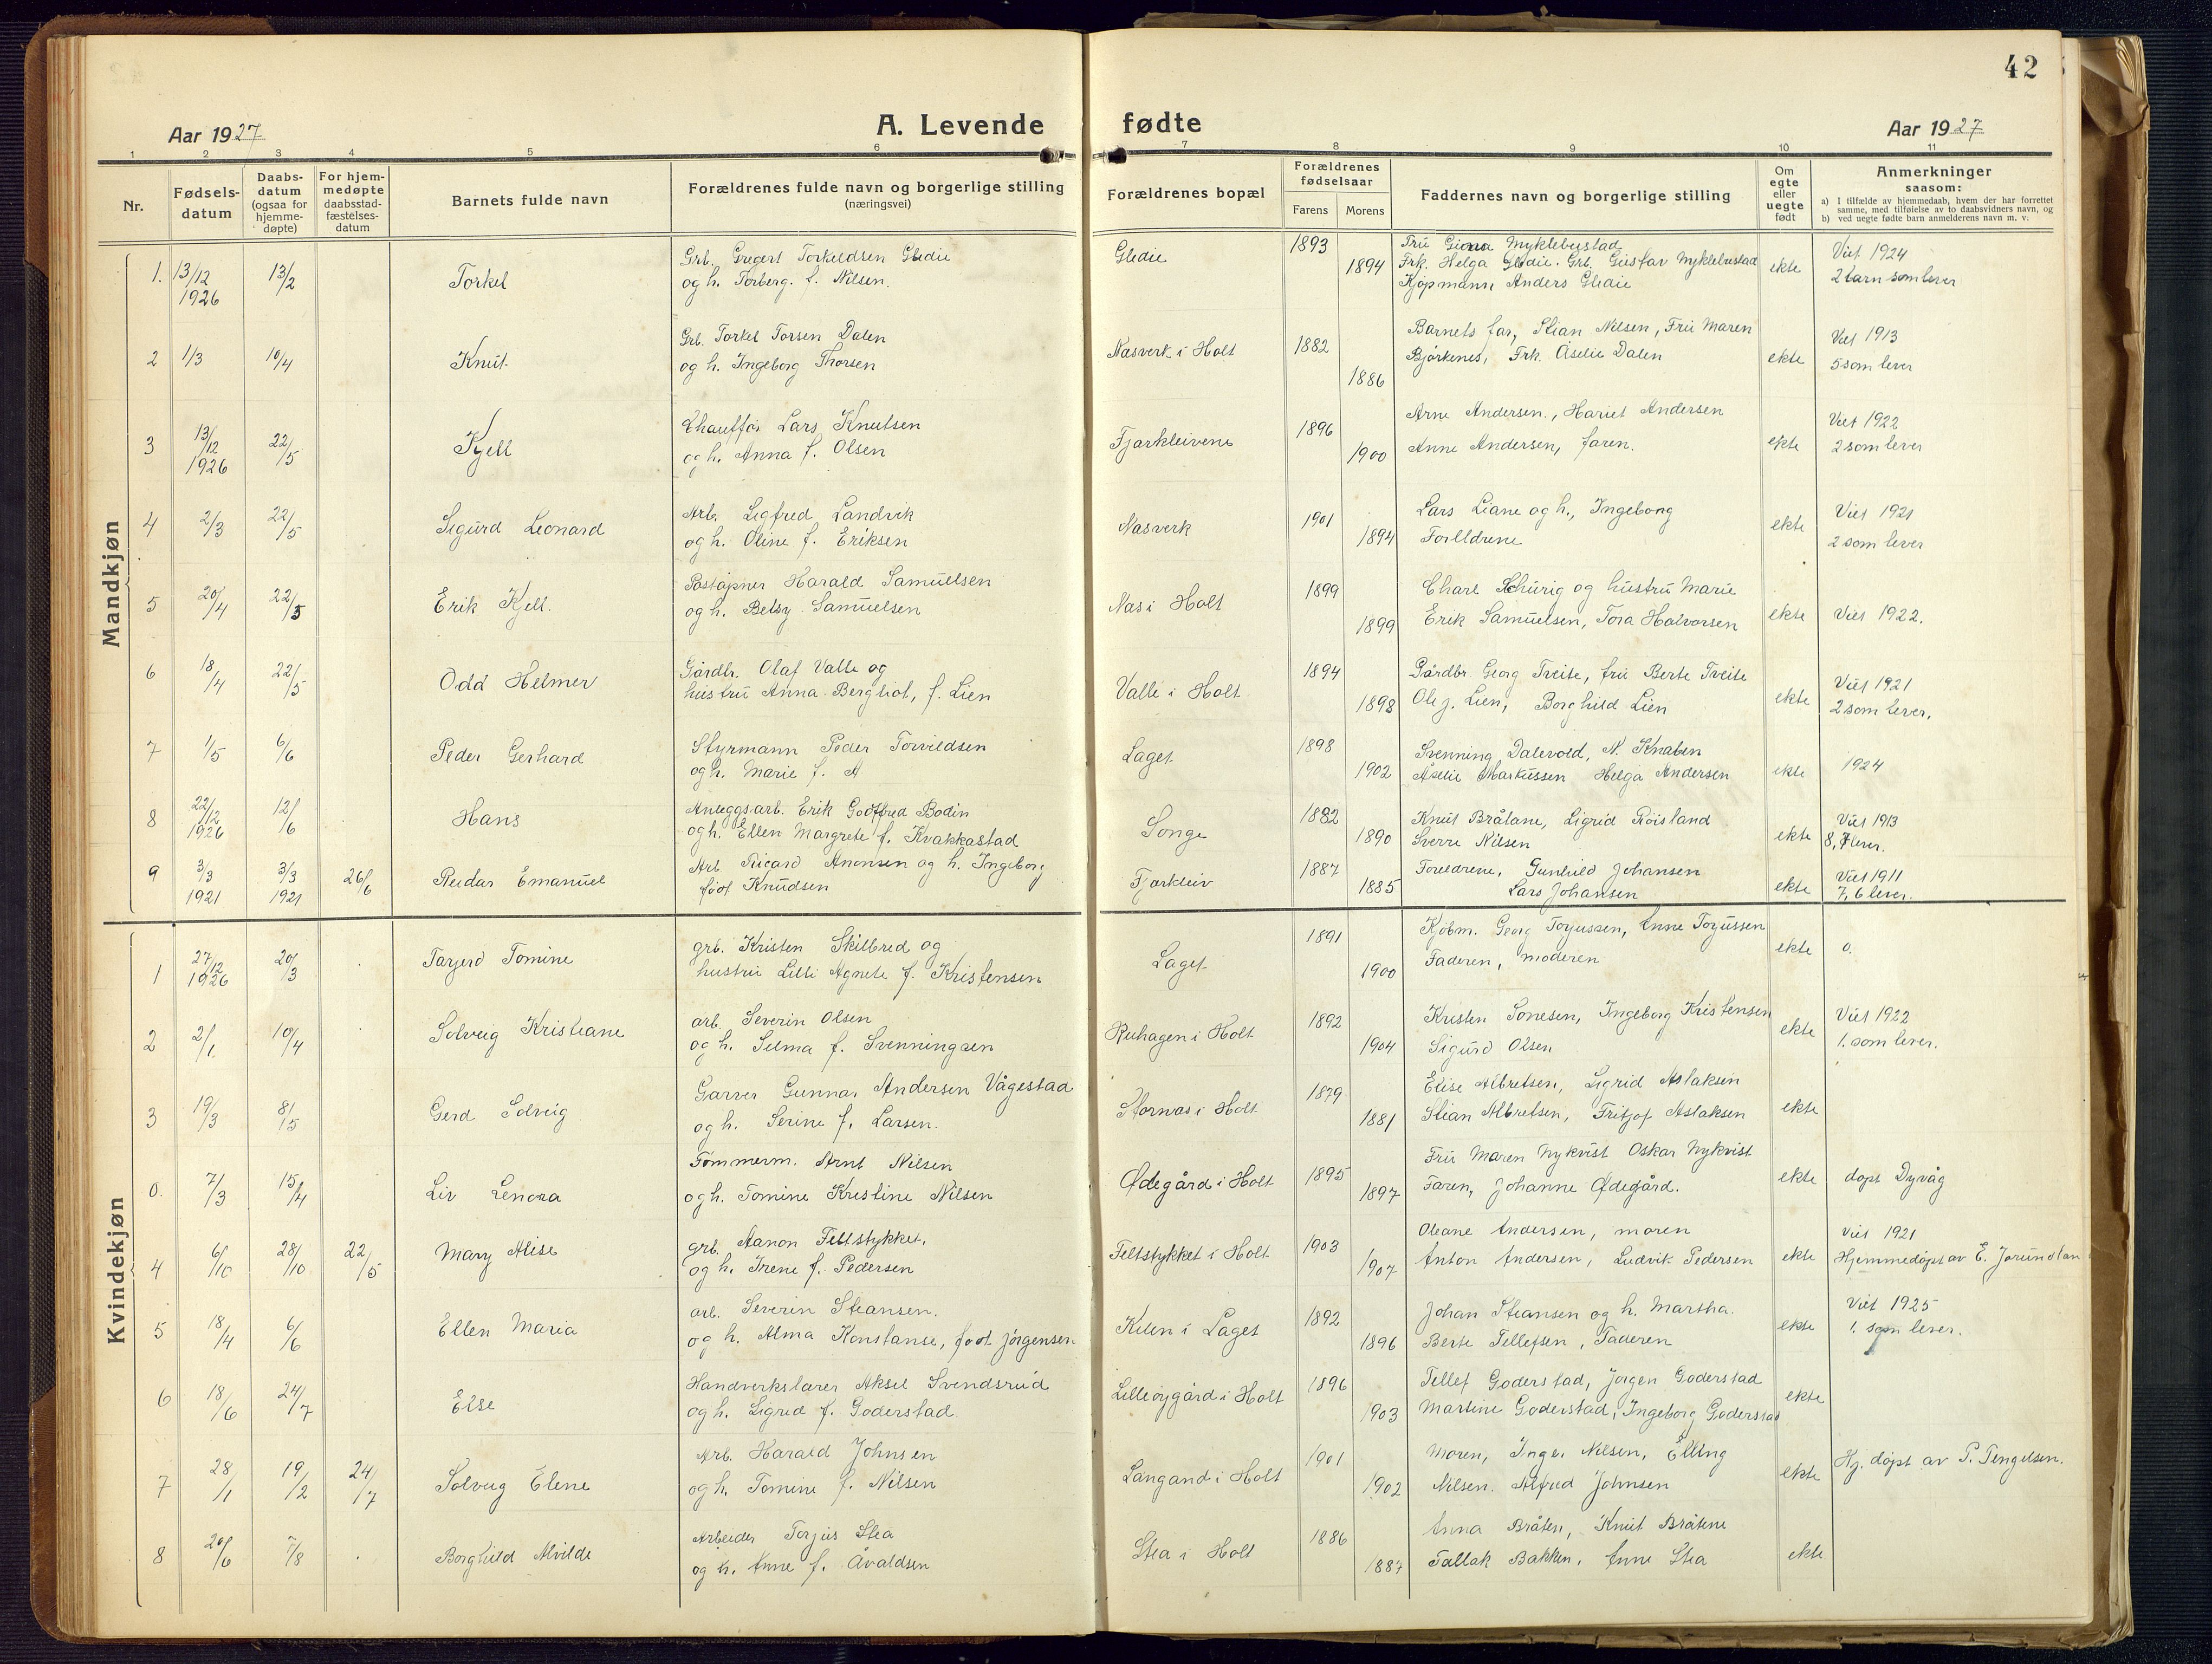 42
Aar 1927
A. Levende fødte
Aar 1927
1 2 3 4 5 6 7 8 9 10 11
Nr.
Fødsels-
datum
Daabs-
datum
(ogsaa for
hjemme-
døpte)
For hjem-
medøpte
daabsstad-
fæstelses-
datum
Barnets fulde navn
Forældrenes fulde navn og borgerlige stilling
(næringsvei)
Forældrenes bopæl
Forældrenes
fødselsaar
Farens Morens
Faddernes navn og borgerlige stilling
Om
egte
eller
uegte
født
Anmerkninger
saasom:
a) I tilfælde av hjemmedaab, hvem der har forrettet
samme, med tilføielse av to daabsvidners navn, og
b) ved uegte fødte barn anmelderens navn m. v.
Mandkjøn
1. 13/12 1926 13/2 Torkel
Grb. Gregert Torkeldsen Gledie
og h. Torberg. f. Nilsen.
Gledie 1893 1894
Fru Myklebustad
Frk. Helga Gledie. Grb. Gustav Myklebustad
Kjøpmann Anders Gledie
ekte
Viet 1924
2 barn som lever
2 1/3 10/4 Knut.
Grb. Torkel Torsen Dalen
og h. Ingeborg Thorsen
Næsverk i Holt 1882 1886
Barnets far, Stian Nilsen, Fru Maren
Bjørkenes, Frk. Åselie Dalen
ekte
Viet 1913
5 som lever
3 13/12 1926 22/5 Kjell
Chauffør Lars Knutsen
og h. Anna f. Olsen
Fjærkleivene 1896 1900
Arne Andersen., Hariet Andersen
Anne Andersen, faren.
ekte
Viet 1922
2 som lever
4 2/3 22/5 Sigurd Leonard
Arb. Sigfred Landvik
og h. Oline f. Eriksen
Næsverk 1901 1894
Lars Liane og h., Ingeborg
Forlldrene
ekte
Viet 1921
2 som lever
5 20/4 22/5 Erik Kjell.
Poståpner Harald Samuelsen
og h. Betsy Samuelsen
Næs i Holt 1899 1899
Charl Schurig og hustru Marie
Erik Samuelsen, Tora Halvorsen
ekte
Viet 1922.
6 18/4 22/5 Odd Helmer
Gårdbr. Olaf Valle og
hustru Anna Bergliot, f. Lien
Valle i Holt 1894 1898
Gårdbr. Georg Tveite, fru Berte Tveite
Ole J. Lien, Borghild Lien
ekte
Viet 1921
2 som lever.
7 1/5 6/6 Peder Gerhard
Styrmann Peder Torvildsen
og h. Marie f. A
Laget 1898 1902
Svenning Dalevold, N. Knaben
Åselie Markussen Helga Andersen
ekte
1924
8 22/12 1926 12/6 Hans
Anleggsarb. Erik Godtfred Bodin
og h. Ellen Margrete f. Kvakkastad
Songe 1882 1890
Knut Bråtane, Sigrid Røisland
Sverre Nilsen
ekte
Viet 1913
8, 7 lever.
9 3/3 1921 3/3 1921 26/6 Reidar Emanuel
Arb Ricard Anonsen og h. Ingeborg
født Knudsen
Fjærkleiv 1887 1885
Foreldrene, Gunhild Johansen
Lars Johansen
ekte
Viet 1911
7, 6 lever.
Kvindekjøn
1 27/12 1926 20/3 Tarjerd Tomine
grb. Kristen Skilbred og
hustru Lilli Agnete f. Kristensen
Laget 1891 1900
Kjøbm. Georg Torjussen, Anne Torjussen
Faderen, moderen
ekte 0.
2 2/1. 10/4 Solveig Kristiane
arb. Severin Olsen
og h. Selma f. Svenningsen
Ruhagen i Holt 1892 1904
Kristen Sønesen, Ingeborg Kristensen
Sigurd Olsen
ekte
Viet 1922
1. som lever.
3 19/3 8/5 Gerd Solveig
Garver Gunnar Andersen Vågestad
og h. Serine f. Larsen.
Stornæs i Holt 1879 1881
Elise Albretsen, Sigrid Aslaksen
Stian Albretsen, Fritjof Aslaksen
ekte
0. 7/3 15/4 Liv Lenora
Tømmerm. Arnt Nilsen
og h. Tomine Kristine Nilsen
Ødegård i Holt 1895 1897
Fru Maren Nykvist Oskar Nykvist
Faren, Johanne Ødegård.
ekte
døpt Dyvåg
4 6/10 28/10 22/5 Mary Alise
grb. Aanon Feltstykket.
og h. Irene f. Pedersen
Feltstykket i Holt 1903 1907
Oleane Andersen, moren
Anton Andersen, Ludvik Pedersen
ekte
Viet 1921
Hjemmedøpt av E. Jorundlan
5 18/4 6/6 Ellen Maria
arb. Severin Steansen.
og h. Alma Konstanse, født Jørgensen
Kilen i Laget 1892 1896
Johan Steansen og h. Martha.
Berte Tellefsen, Faderen
ekte
Viet 1925
1. som lever.
6 18/6 24/7 Else
Handverkslærer Aksel Svendsrud
og h. Sigred f. Goderstad.
Lilleøygård i Holt 1896 1903
Tellef Goderstad, Jørgen Goderstad
Martine Goderstad, Ingeborg Goderstad
ekte
7 28/1 19/2 24/7 Solveig Elene
Arb. Harald Johnsen
og h. Tomine f. Nilsen
Langand i Holt 1901 1902
Moren, Inger Nilsen, Elling
Nilsen. Alfred Johnsen
ekte
Hj. døpt av P. Tengelsen.
8 20/6 7/8 Borghild Alvilde
Arbeider Torjus Stea
og h. Anne f. Avaldsen
Stea i Holt 1886 1887
Anna Bråten, Knut Bråtene
Tallak Bakken, Anne Stea
ekte